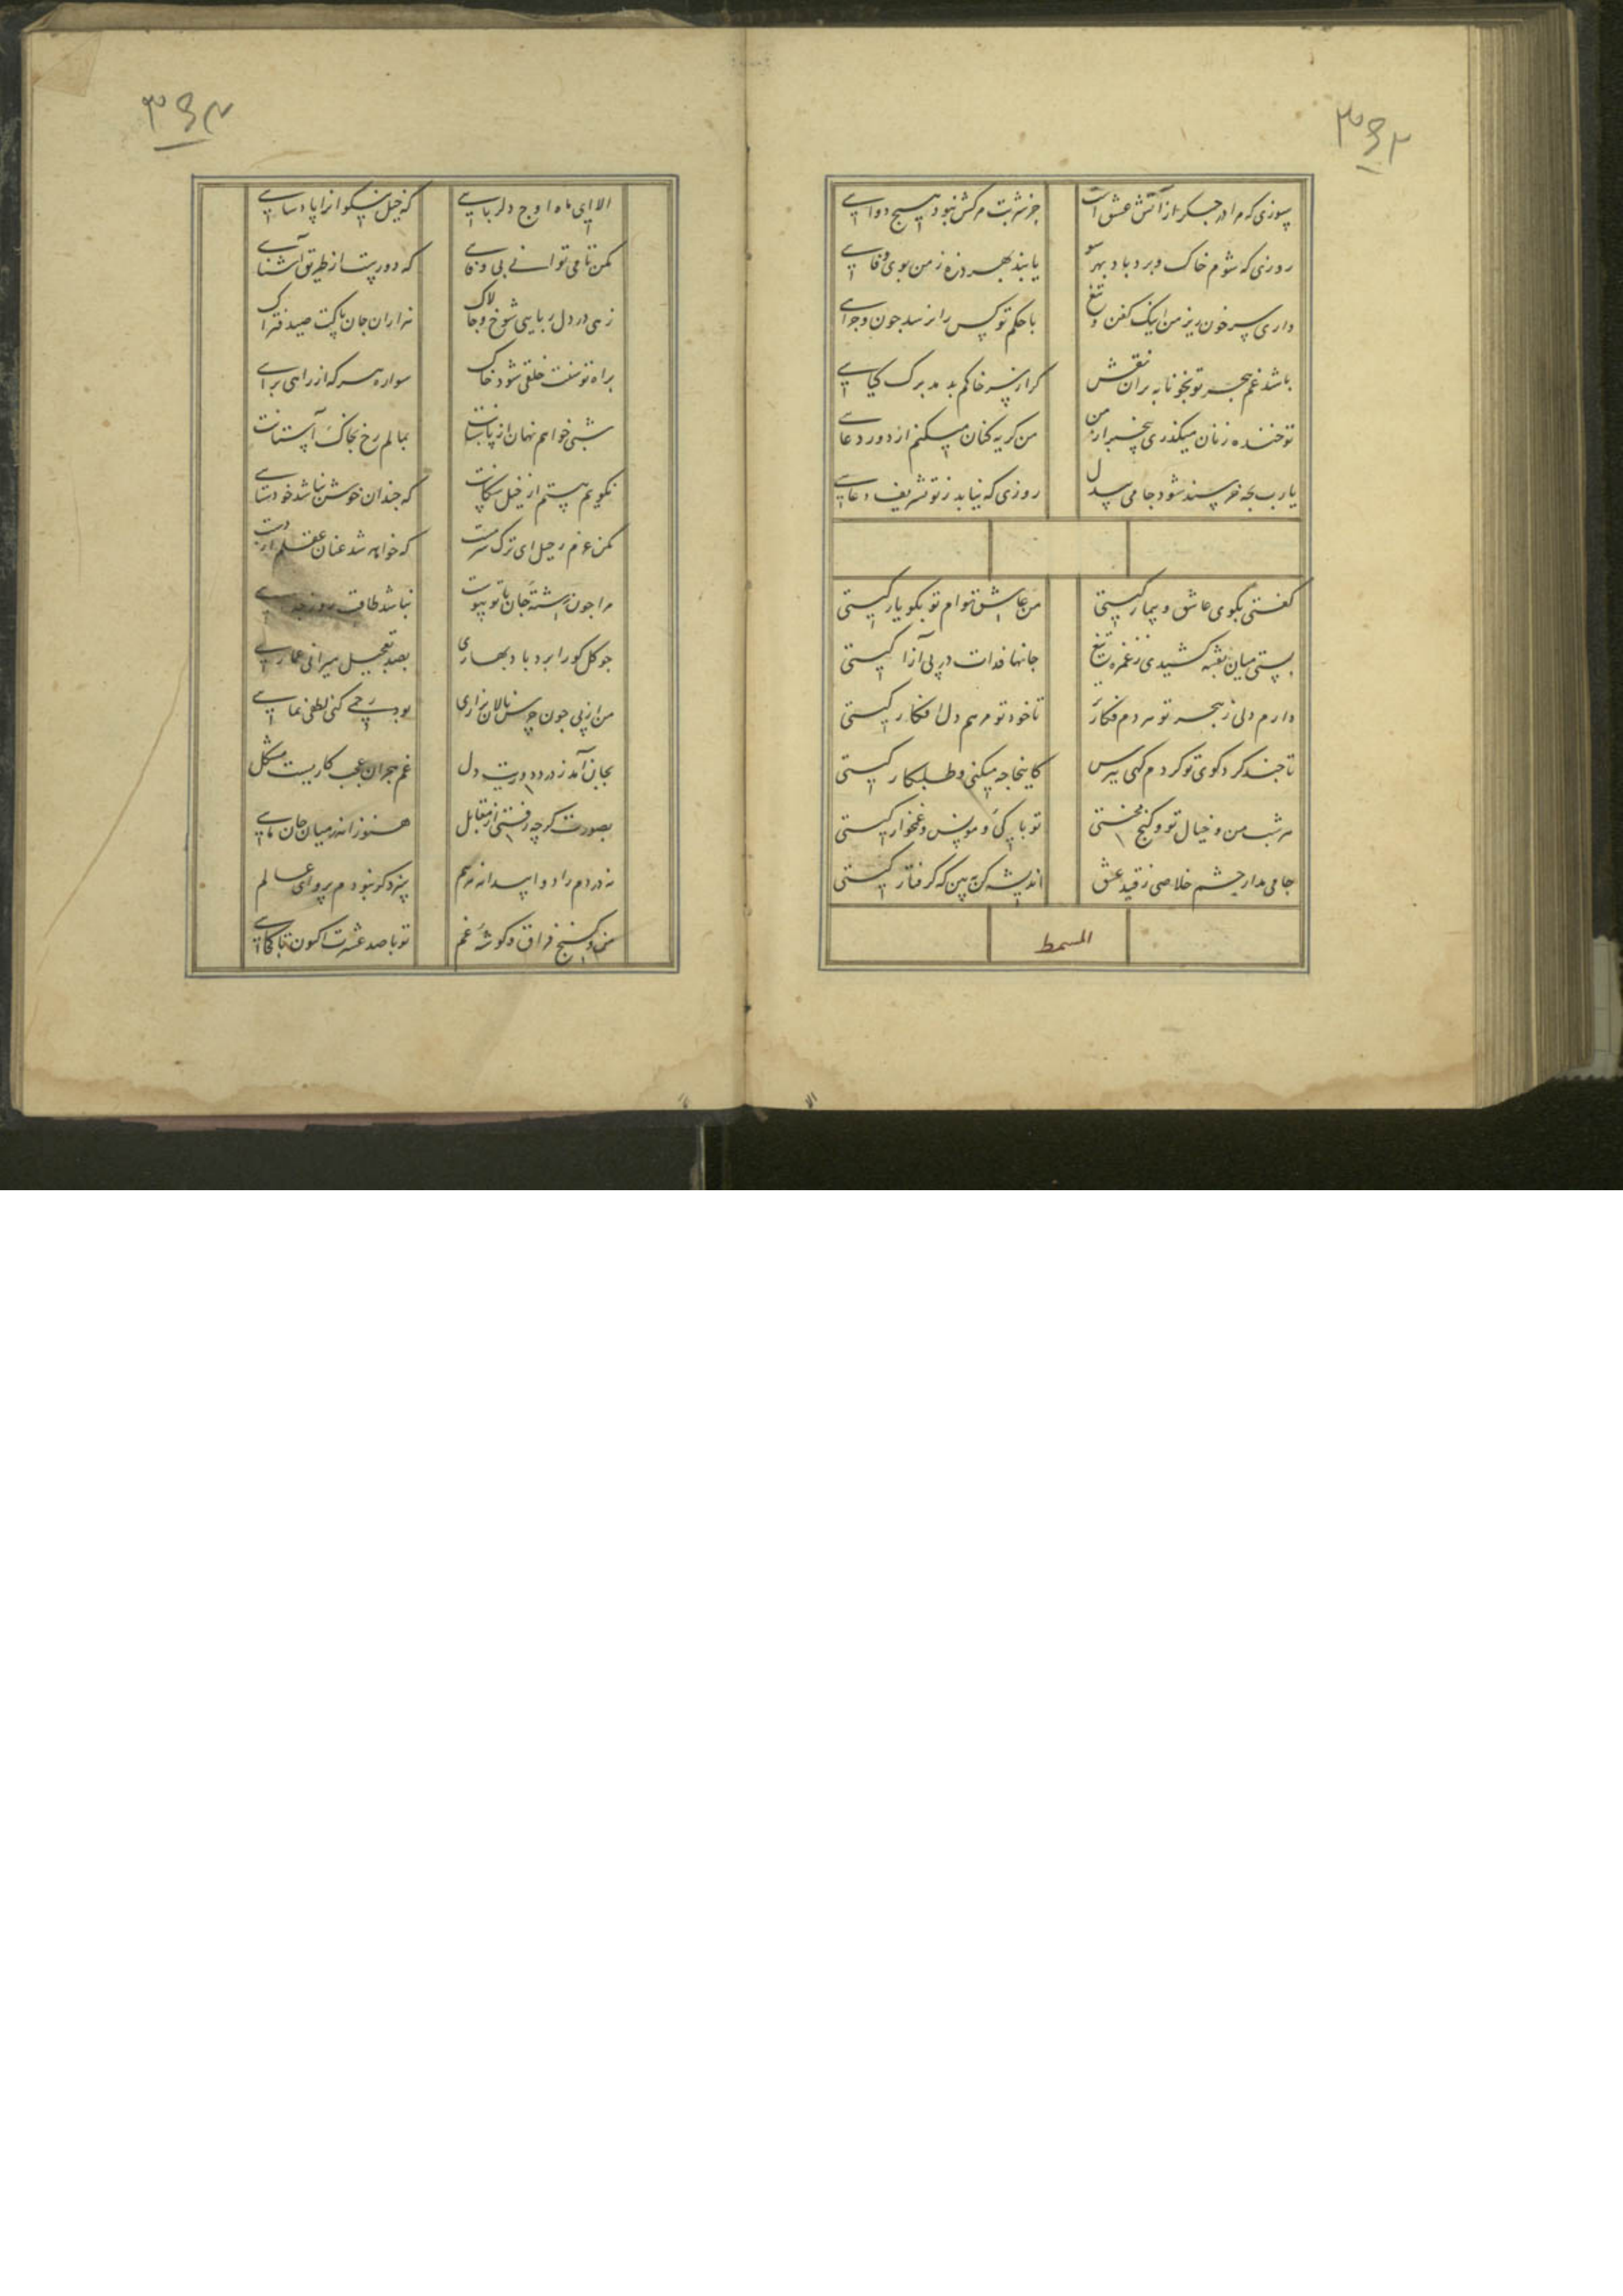 ۳۹۲
سوزی که مرا در جگر از آتش عشق است
جز شربت مرکش نبود هیچ دوایی
روزی که شوم خاک و برد باد بهر سو
یابند بهر ذره ز من بوی وفایی
داری سر خون ریز من اینک کفن و تیغ
با حکم تو کس را نرسد چون و چرایی
باشد غم هجر تو بخونابه بران نقش
کر از سر خاکم بدمد برک کیایی
تو خنده زنان میکذری بیخبر از من
من کریه کنان میکنم از دور دعایی
یارب بچه خرسند شود جامی بیدل
روزی که نیابد ز تو تشریف دعایی
کفتی بکوی عاشق و بیمار کیستی
من عاشق توام تو بکو یار کیستی
بستی میان بفتنه کشیدی ز غمزه تیغ
جانها فدات در پی آزار کیستی
دارم دلی ز هجر تو هر دم فکارتر
تا خود تو مرهم دل افکار کیستی
تا چند کرد کوی تو کردم کهی بپرس
کاینجا چه میکنی و طلبکار کیستی
هر شب من و خیال تو و کنج محنتی
تو با که و مونس و غمخوار کیستی
جامی مدار چشم خلاصی ز قید عشق
اندیشه کن ببین که کرفتار کیستی
المسمط
۳۹۳
الا ای ماه اوج دلربایی
که خیل نیکوانرا پادشایی
مکن تا می توانی بی وفایی
که دورست از طریق آشنایی
زهی در دل ربایی شوخ و چالاک
هزاران جان پاکت صید فتراک
براه توسنت خلقی شود خاک
سواره هر که از راهی برایی
شبی خواهم نهان از پاسبانت
بمالم رخ بخاک آستانت
نکویم هستم از خیل سکانت
که چندان خوش نباشد خودستایی
مکن عزم رحیل ای ترک سرمست
که خواهد شد عنان عقلم از دست
مرا چون رشته جان با تو پیوست
نباشد طاقت روز جدایی
چو کل کورا برد باد بهاری
بصد تعجیل میرانی عماری
من از پی چون جرس نالان بزاری
بود رحمی کنی لطفی نمایی
بجان آمد ز درد دوریت دل
غم هجران عجب کاریست مشکل
بصورت کرچه رفتی از مقابل
هنوز اندر میان جان مایی
نه دردم را دوا پیدا نه مرهم
سزد کر نبودم پروای عالم
من و کنج فراق و کوشه غم
تو با صد عشرت اکنون تا کجایی